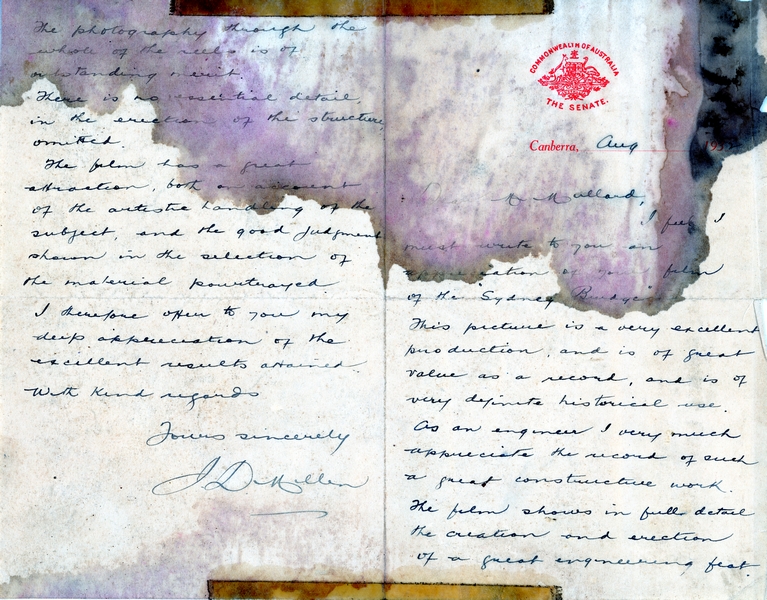 COMMONWEALTH OF AUSTRALIA
THE SENATE.
Canberra, Aug 193
Mr Mallard,
I feel I
must write to you an
appreciation of your film
of the "Sydney Bridge"
This picture is a very excellent
production, and is of great
value as a record, and is of
very definite historical use.
As an engineer I very much
appreciate the record of such
a great constructive work.
The film shows in full detail
the creation and erection
of a great engineering feat.
The photography through the
whole of the reels is of
outstanding merit.
There is no essential detail,
in the erection of the structure,
omitted.
The film has a great
attraction, both on account
of the artistic handling of the
subject, and the good judgment
shown in the selection of
the material pourtrayed
I therefore offer to you my
deep appreciation of the
excellent results attained.
With kind regards
Yours sincerely
J D Millen